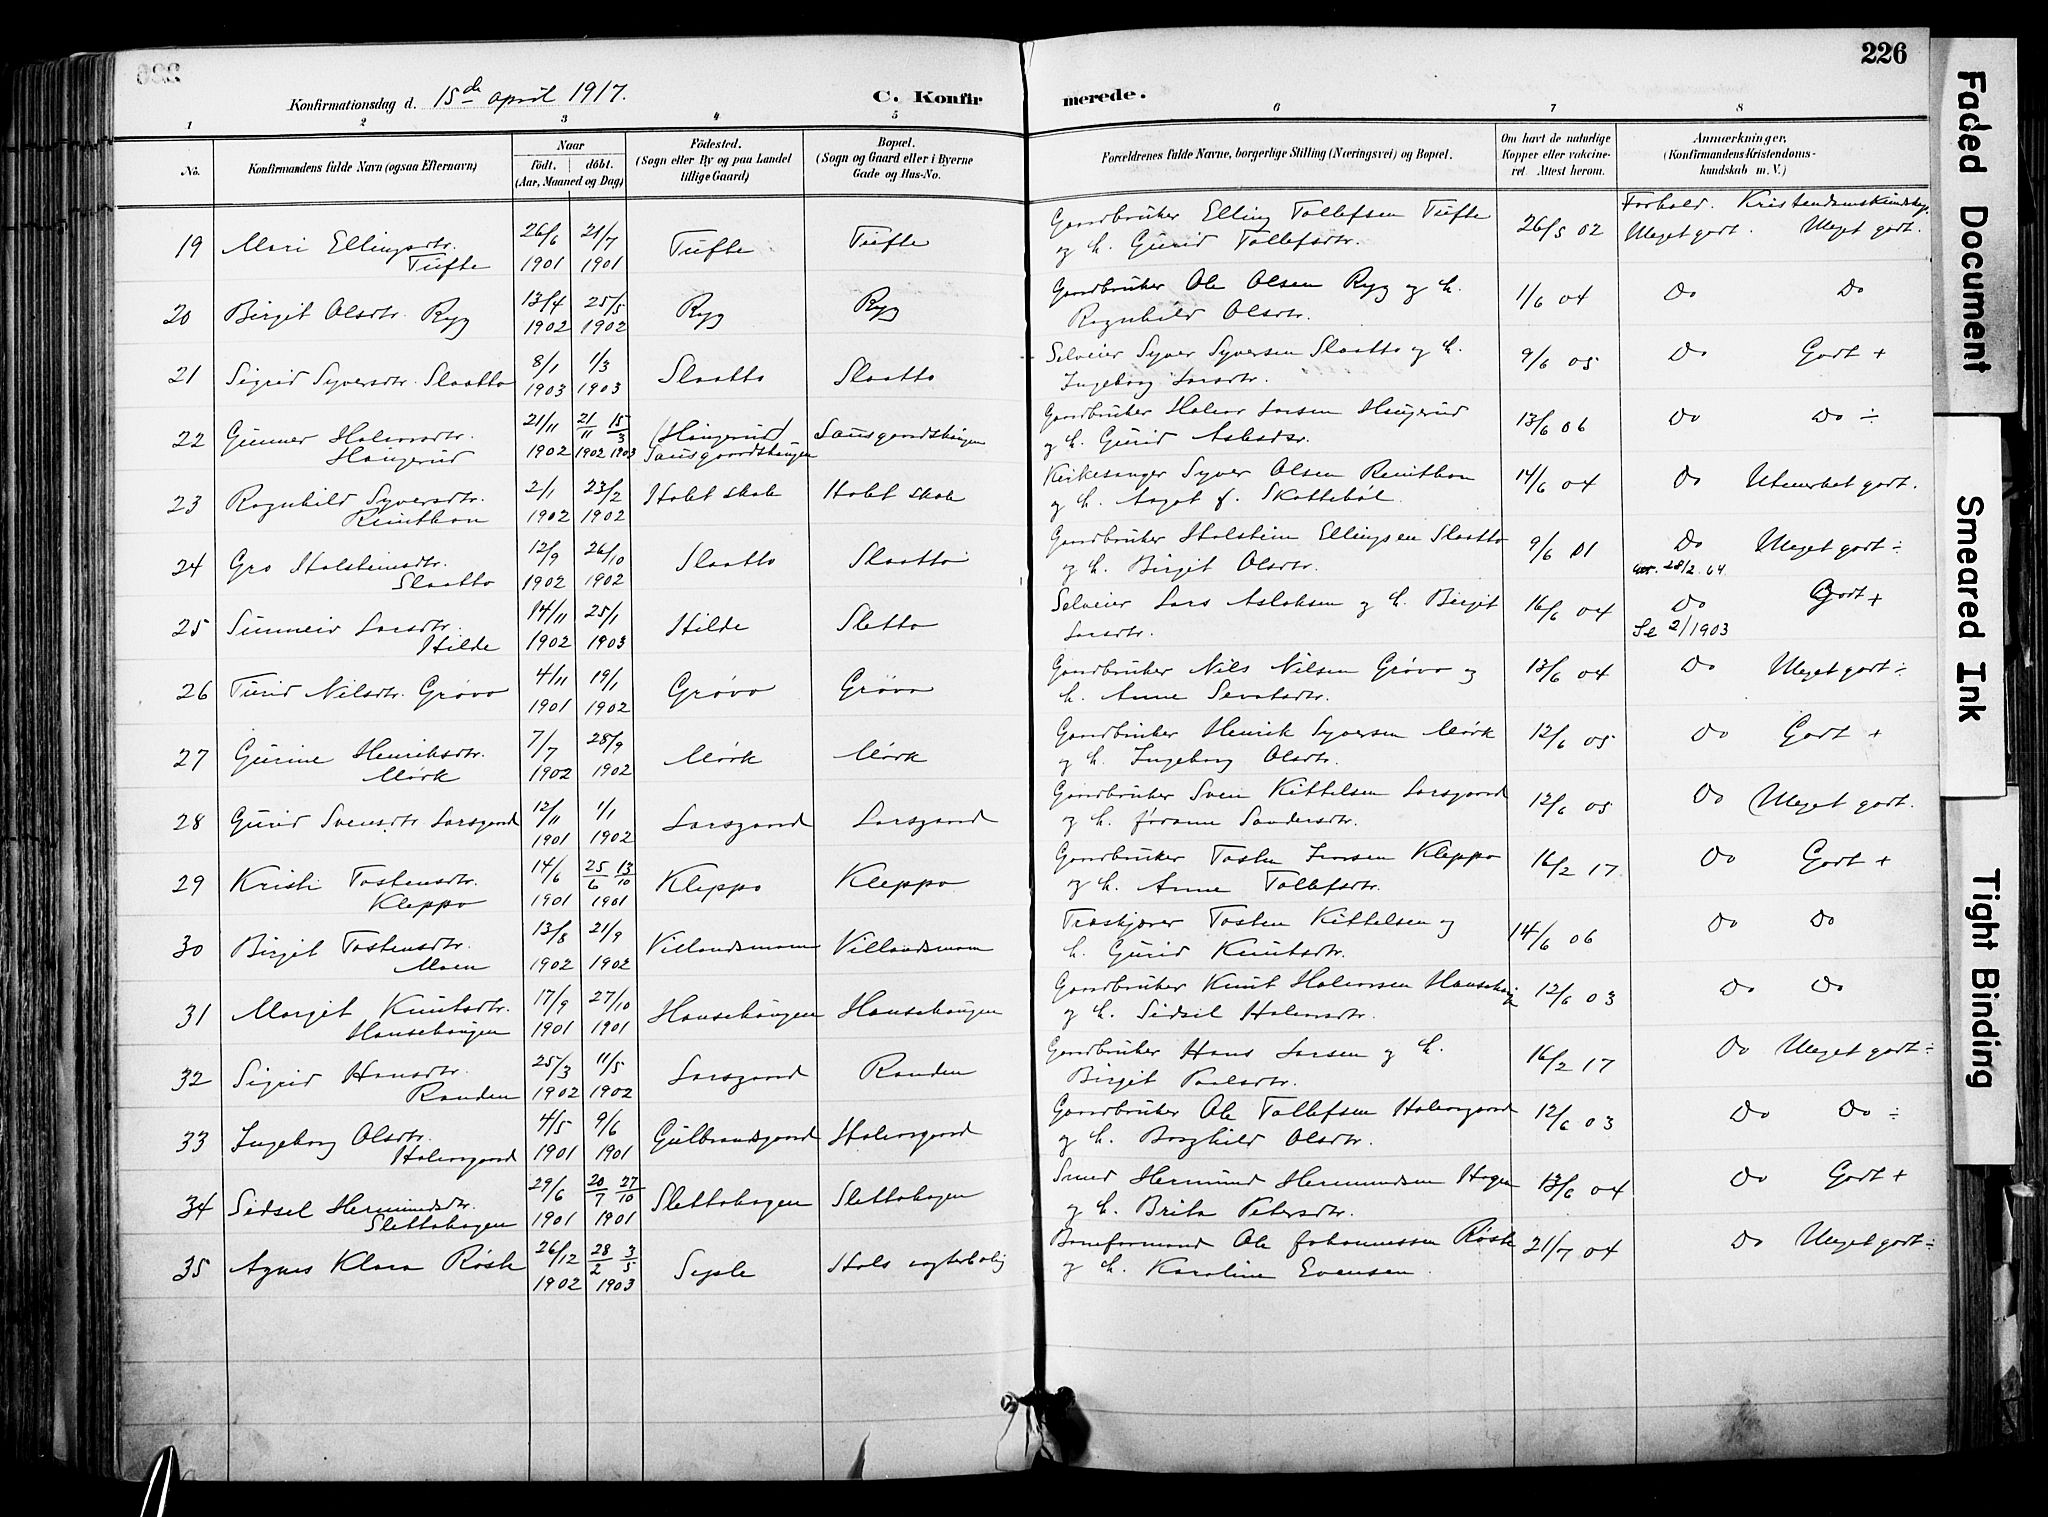 226
Konfirmationsdag d. 15de april 1917. C. Konfirmerede.
1 2 3 4 5 6 7 8
No. Konfirmandens fulde Navn (ogsaa Efternavn) Naar Födt. döbt. (Aar, Maaned og Dag) Födested. (Sogn eller By og paa Landet tillige Gaard) Bopæl. (Sogn og Gaard eller i Byerne Gade og Hus-No. Forældrenes fulde Navne, borgerlige Stilling (Næringsvei) og Bopæl. Om havt de naturlige Kopper eller vakcineret. Attest herom. Anmærkninger, (Konfirmandens Kristendomskundskab m. V.)
Forhold. Kristendomskundsk.
19 Mari Ellingsdtr. Tufte 26/6 1901 21/7 1901 Tufte Tufte Gardbruker Elling Tollefsen Tufte og h. Gunid Tollefsdtr. 26/5 02 Meget godt. Meget godt.
20 Birgit Olsdtr. Ryg 13/4 1902 25/5 1902 Ryg Ryg Gardbruker Ole Olsen Ryg og h. Ragnhild Olsdtr. 1/6 04 Do Do
21 Sigrid Syversdtr. Slaatto 8/1 1903 1/3 1903 Slaatto Slaatto Selveier Syver Syversen Slaatto og h. Ingeborg Larsdtr. 9/6 05 Do Godt +
22 Gunner Halvorsdtr. Haugerud 21/11 1902 21/11 1902 15/3 1903 (Haugerud) Sausgardshaugen Sausgardshaugen Gardbruker Halvor Larsen Haugerud og h. Gurid Aslesdtr. 13/6 06 Do Do ÷
23 Ragnhild Syversdtr. Reinthon 2/1 1902 23/2 1902 Holet skole Holet skole Kirkesanger Syver Olsen Reinthon og h. Aagot f. Skottebøl. 14/6 04 Do Utmerket godt.
24 Gro Holsteinsdtr. Slaatto 12/9 1902 26/10 1902 Slaatto Slaatto Gardbruker Holstein Ellingsen Slaatto og h. Birgit Olsdtr. 9/6 01 Do Meget godt ÷
28/2.64
25 Sunneiv Larsdtr. Hilde 14/11 1902 25/1 1903 Hilde Sletto Selveier Lars Aslaksen og h. Birgit Larsdtr. 16/6 04 Do Godt +
Se 2/1903
26 Turid Nilsdtr. Grøvo 4/11 1901 19/1 1902 Grøvo Grøvo Gardbruker Nils Nilsen Grøvo og h. Anne Sevatsdtr. 13/6 04 Do Meget godt ÷
27 Gurine Henriksdtr. Mørk 7/7 1902 28/9 1902 Mørk Mørk Gardbruker Henrik Syversen Mørk og h. Ingeborg Olsdtr. 12/6 05 Do Godt +
28 Gurid Svensdtr. Larsgard 12/11 1901 1/1 1902 Larsgard Larsgard Gardbruker Sven Kittelsen Larsgard og h. Jørann Sandersdtr. 12/6 05 Do Meget godt.
29 Kristi Tostensdtr. Kleppo 14/6 1901 25/6 13/10 1901 Kleppo Kleppo Gardbruker Tosten Jensen Kleppo og h. Anne Tollefsdtr. 16/2 17 Do Godt +
30 Birgit Tostensdtr. Moen 13/8 1902 21/9 1902 Villandsmoen Villandsmoen Træskjærer Tosten Kittelsen og h. Gurid Knutsdtr. 14/6 06 Do Do
31 Margit Knutsdtr. Hansehaugen 17/9 1901 27/10 1901 Hansehaugen Hansehaugen Gardbruker Knut Halvorsen Hansehaug og h. Sidsel Halvorsdtr. 12/6 03 Do Do
32 Sigrid Hansdtr. Randen 25/3 1902 11/5 1902 Larsgard Randen Gardbruker Hans Larsen og h. Birgit Paalsdtr. 16/2 17 Do Meget godt ÷
33 Ingeborg Olsdtr. Halvorgard 4/5 1901 9/6 1901 Gulbrandsgard Halvorgard Gardbruker Ole Tollefsen Halvorgard og h. Borghild Olsdtr. 12/6 03 Do Do ÷
34 Sidsel Hermundsdtr. Slettehagen 29/6 1901 20/7 27/10 1901 Slettehagen Slettehagen Smed Hermund Hermundsen Hagen og h. Brita Petersdtr. 13/6 04 Do Godt +
35 Agnes Klara Røsk 26/12 1902 28/2 3/5 1903 Sysle Hols vogterbolig Baneformand Ole Johannessen Røsk og h. Karoline Evensen. 21/7 04 Do Meget godt ÷
Faded Document
Smeared Ink
Tight Binding